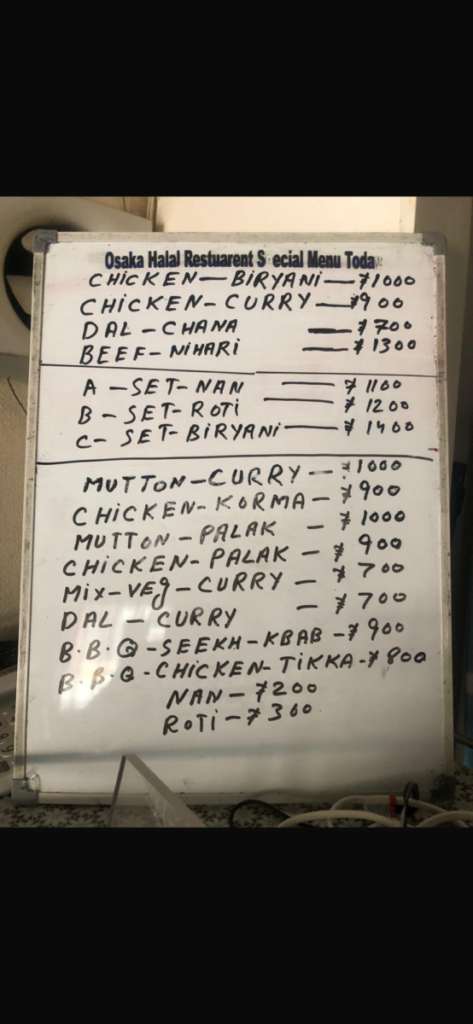 Osaka Halal Restuarent S ecial Menu Toda
CHICKEN—BIRYANI—¥1000
CHICKEN-CURRY—¥900
DAL-CHANA —¥700
BEEF-NIHARI —¥1300
A-SET-NAN —¥1100
B-SET-ROTI —¥1200
C-SET-BIRYANI—¥1400
MUTTON-CURRY-¥1000
CHICKEN-KORMA-¥900
MUTTON-PALAK -¥1000
CHICKEN-PALAK-¥900
MIX-VEG-CURRY-¥700
DAL-CURRY -¥700
B.B.Q-SEEKH-KBAB-¥900
B.B.Q-CHICKEN-TIKKA-¥800
NAN-¥200
ROTI-¥300